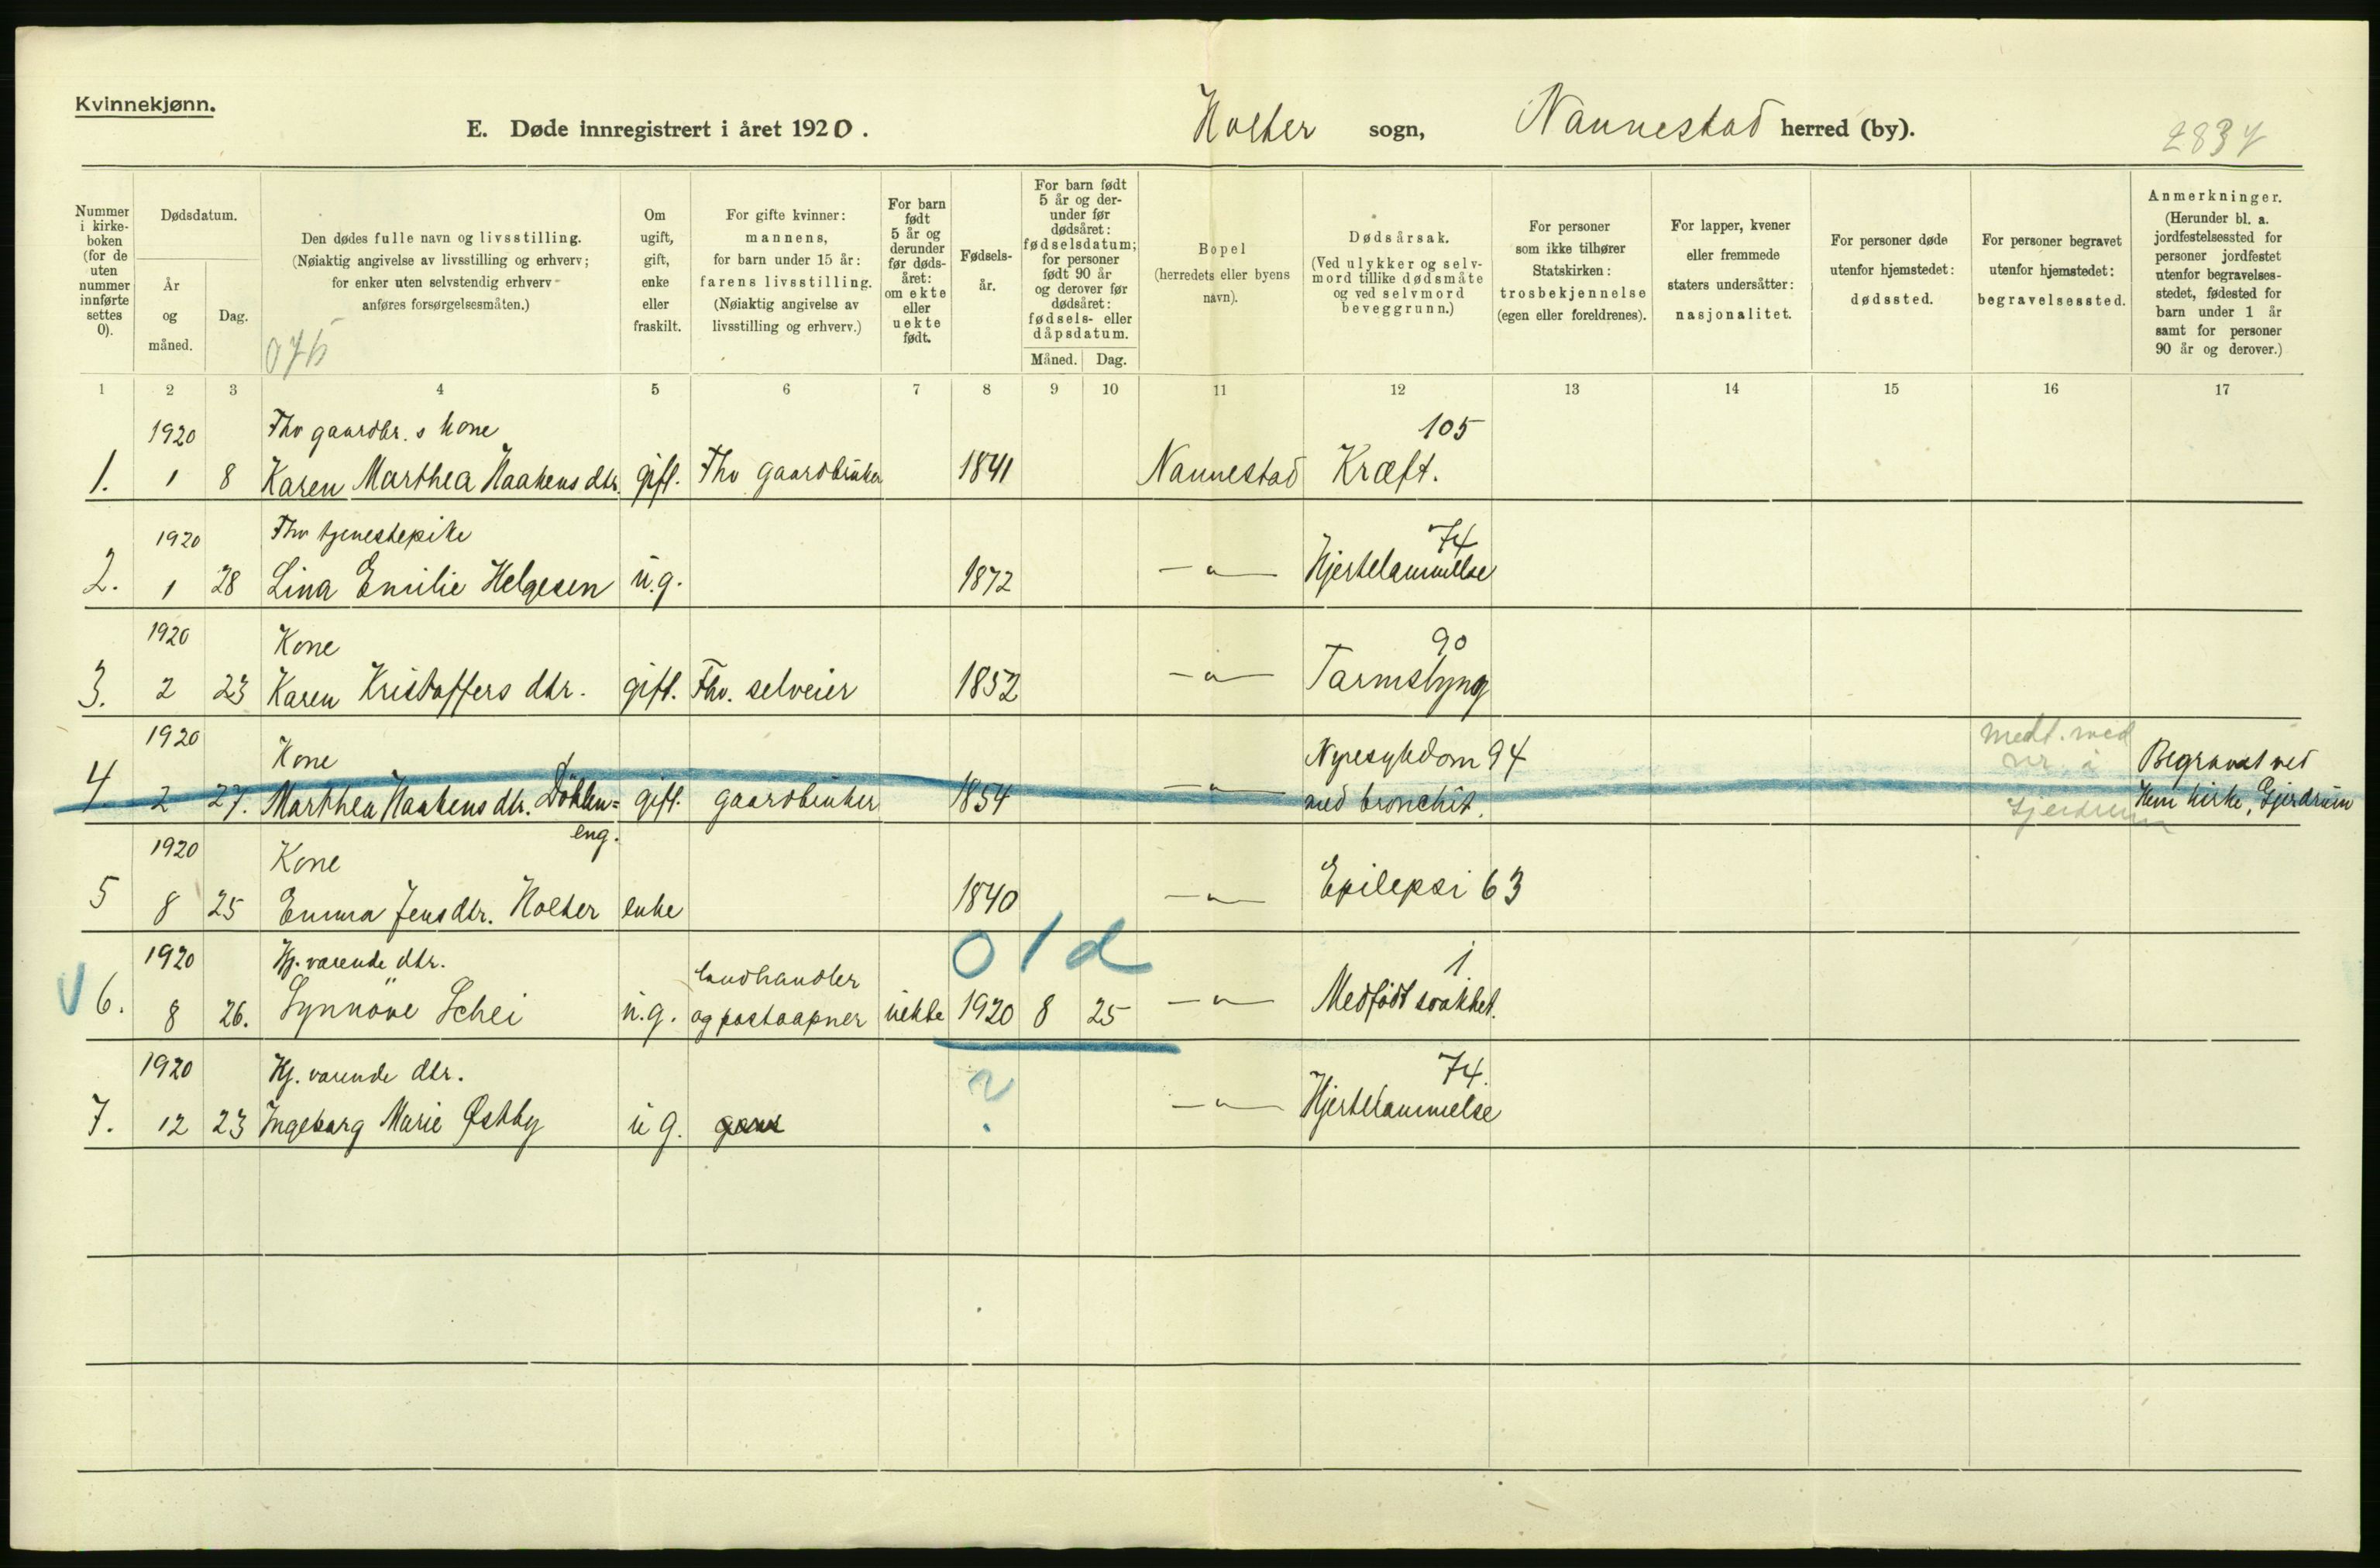 Kvinnekjønn.
E. Døde innregistrert i året 1920.
Holter sogn, Nannestad herred (by).
2837
Nummer i kirke-boken (for de uten nummer innførte settes 0).
Dødsdatum.
År og måned.
Dag.
Den dødes fulle navn og livsstilling.
(Nøiaktig angivelse av livsstilling og erhverv;
for enker uten selvstendig erhverv
anføres forsørgelsesmåten.)
Om
ugift,
gift,
enke
eller
fraskilt.
For gifte kvinner:
mannens,
for barn under 15 år:
farens livsstilling.
(Nøiaktig angivelse av
livsstilling og erhverv.)
For barn
født
5 år og
derunder
før døds-
året:
om ekte
eller
uekte
født.
Fødsels-
år.
For barn født
5 år og der-
under før
dødsåret:
fødselsdatum;
for personer
født 90 år
og derover før
dødsåret:
fødsels- eller
dåpsdatum.
Måned. Dag.
Bopel
(herredets eller byens
navn).
Dødsårsak.
(Ved ulykker og selv-
mord tillike dødsmåte
og ved selvmord
beveggrunn.)
For personer
som ikke tilhører
Statskirken:
trosbekjennelse
(egen eller foreldrenes).
For lapper, kvener
eller fremmede
staters undersåtter:
nasjonalitet.
For personer døde
utenfor hjemstedet:
dødssted.
For personer begravet
utenfor hjemstedet:
begravelsessted.
Anmerkninger.
(Herunder bl. a.
jordfestelsessted for
personer jordfestet
utenfor begravelses-
stedet, fødested for
barn under 1 år
samt for personer
90 år og derover.)
1 2 3 4 5 6 7 8 9 10 11 12 13 14 15 16 17
1920 Fhv gaardbr.s kone 105
1. 1 8 Karen Marthea Haakens dtr. gift. Fhv gaardbruker 1841 Nannestad Kræft.
1920 Fhv tjenestepike 74
2. 1 28 Lina Emilie Helgesen u.g. 1872 —"— Hjertelammelse
1920 Kone 90
3. 2 23 Karen Kristoffers dtr. gift. Fhv. selveier 1852 —"— Tarmslyng
1920 Kone Nyresykdom 94 medt. med Begravet ved
4. 2 27. Marthea Haakens dtr. Döhlen= gift. gaardbruker 1854 —"— med bronchit. nr. i Hem kirke, Gjerdrum
eng. Gjerdrum
1920 Kone
5 8 25 Emma Jens dtr. Holter enke 1840 —"— Epilepsi 63
1920 Hj. værende dtr. landhandler 0 1 d 1.
6. 8 26. Synnöve Schei u.g. og postaapner uekte 1920 8 25 —"— Medfödt svakhet.
1920 Hj. værende dtr. ? 74.
7. 12 23 Ingeborg Marie Østby u g. —"— Hjertelammelse